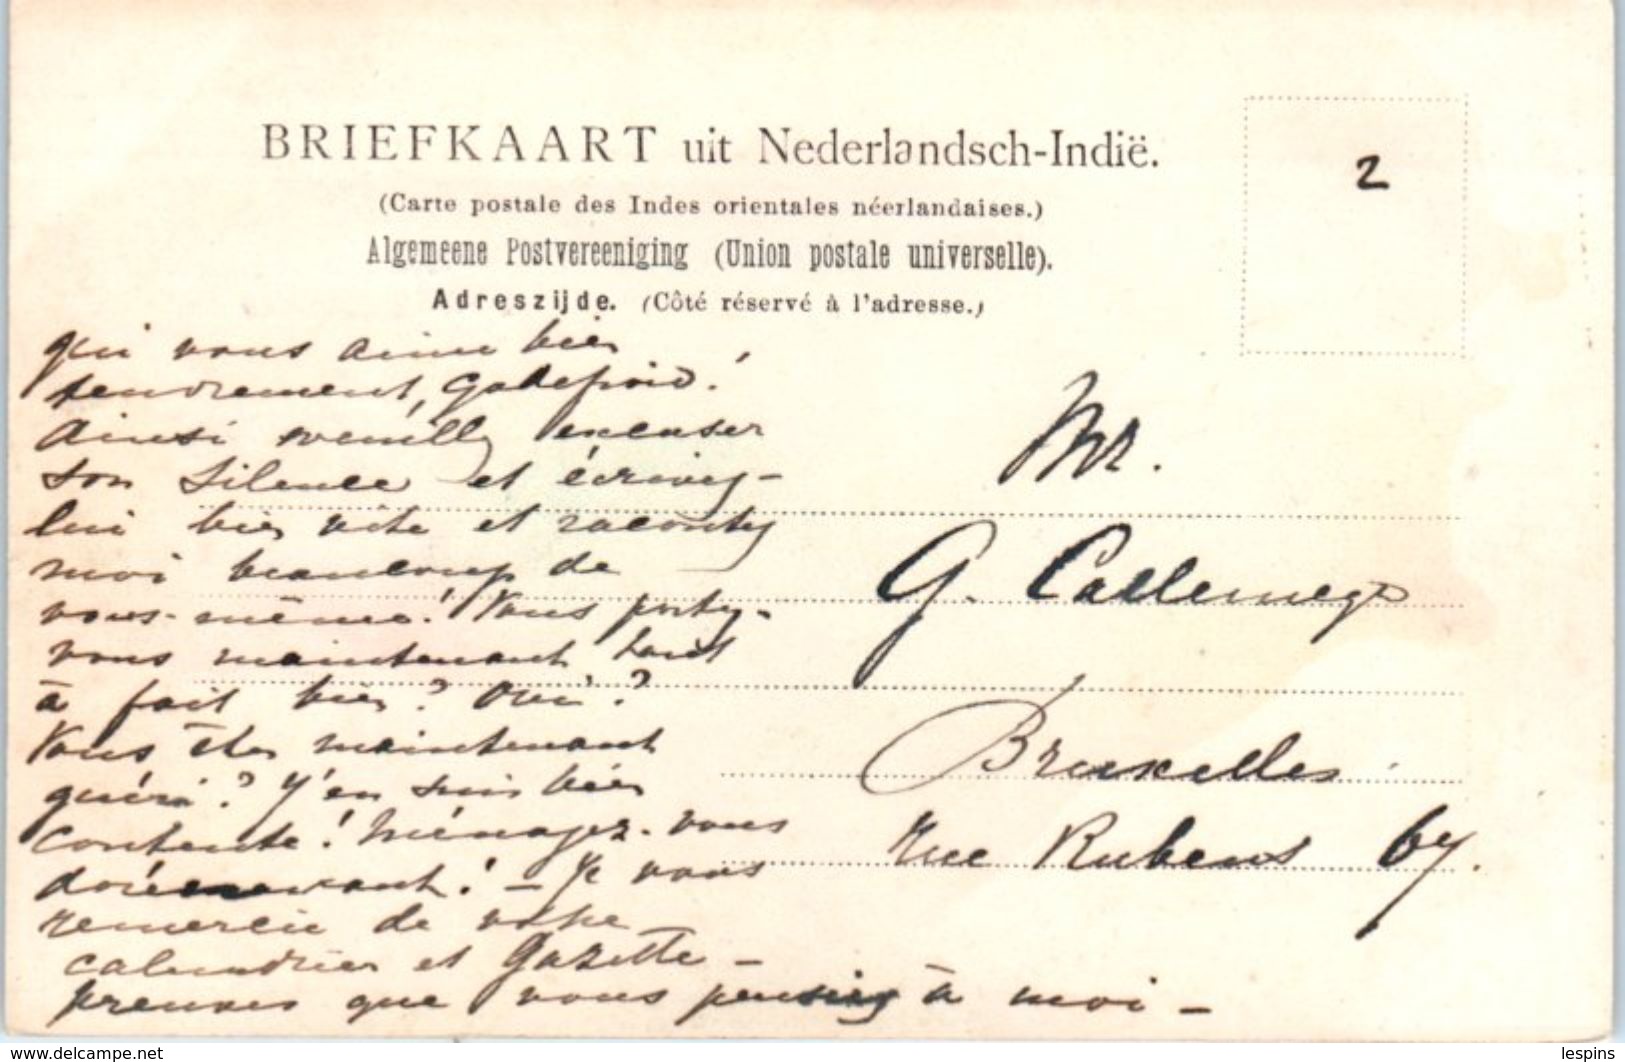 BRIEFKAART uit Nederlandsch-Indië.
(Carte postale des Indes orientales néerlandaises.)
Algemeene Postvereeniging (Union postale universelle).
Adreszijde. (Côté réservé à l'adresse.)
2
qui vous aime bien
tendrement,
Ainsi veuilly excuser
son silence et écrivey-
lui bien vite et raconty
moi beaucoup de
vous-même! Vous porty-
vous maintenant tout
à fait bien? Oui?
Vous êtes maintenant
guéri? J'en suis bien
contente! Ménagez-vous
dorénavant! - Je vous
remercie de votre
calendrier et Gazette -
preuves que vous pensiey à moi -
Mr.
G. Callemeyn
Bruxelles.
Rue Rubens 67.
www.delcampe.net
lespins